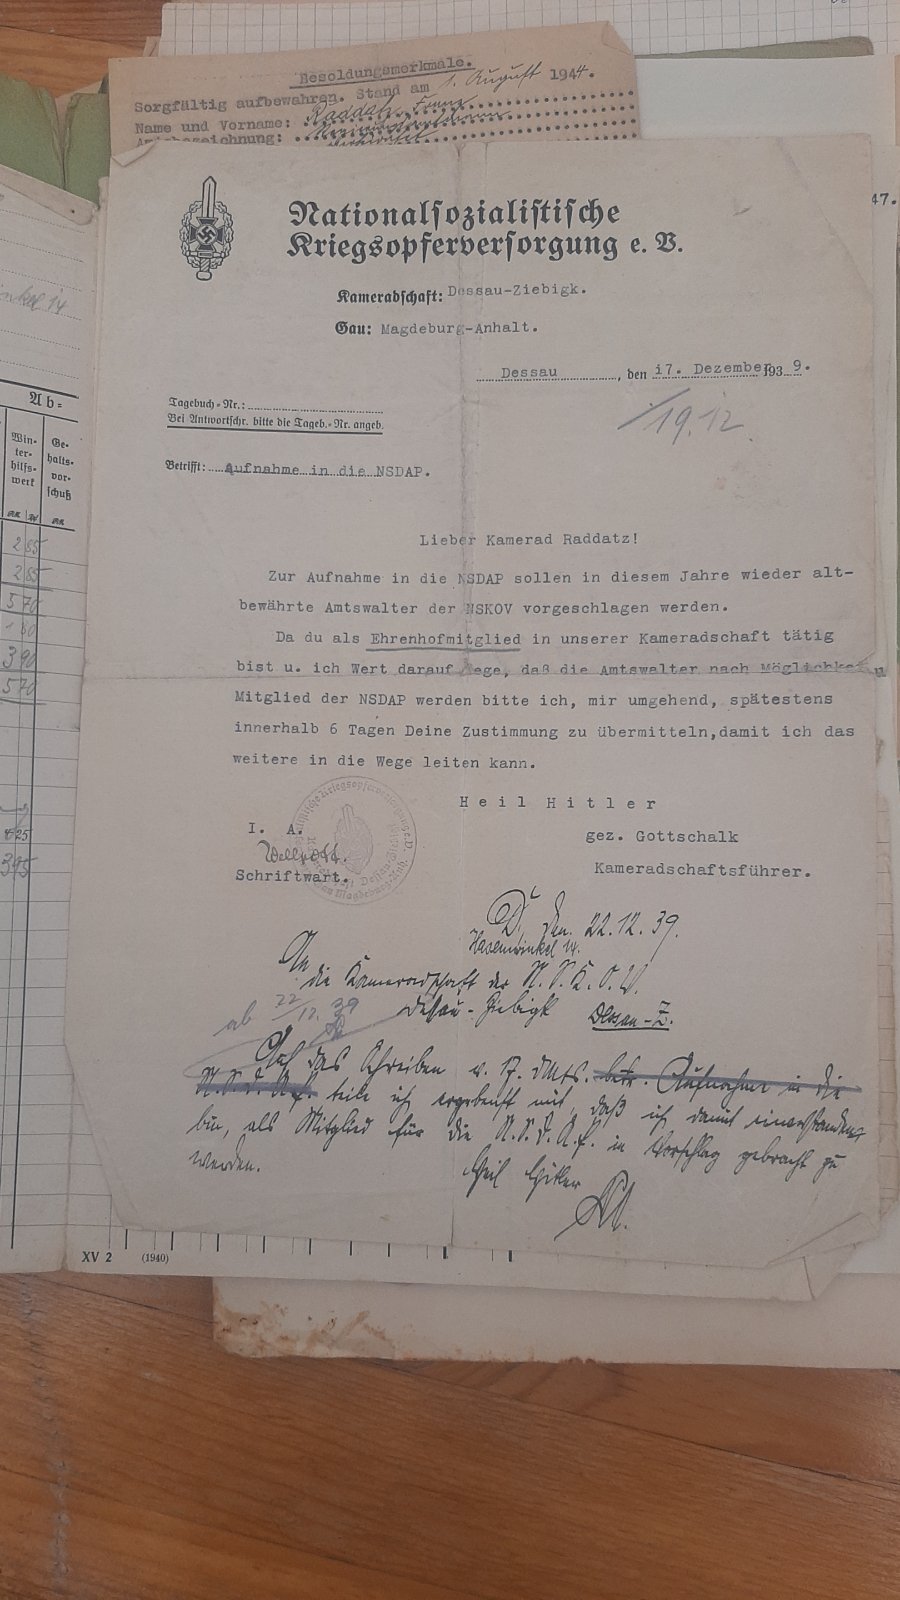 Besoldungsmerkmale.
Sorgfältig aufbewahren. Stand am 1. August 1944.
Name und Vorname: Raddatz, Franz
Amtsbezeichnung:
47.
Nationalsozialistische
Kriegsopferversorgung e. V.
Kameradschaft: Dessau-Ziebigk.
Gau: Magdeburg-Anhalt.
Dessau, den 17. Dezember 1939.
19.12.
Tagebuch-Nr.:
Bei Antwortschr. bitte die Tageb.-Nr. angeb.
Betrifft: Aufnahme in die NSDAP.
Lieber Kamerad Raddatz!
Zur Aufnahme in die NSDAP sollen in diesem Jahre wieder alt-
bewährte Amtswalter der NSKOV vorgeschlagen werden.
Da du als Ehrenhofmitglied in unserer Kameradschaft tätig
bist u. ich Wert darauf lege, daß die Amtswalter nach
Mitglied der NSDAP werden bitte ich, mir umgehend, spätestens
innerhalb 6 Tagen Deine Zustimmung zu übermitteln,damit ich das
weitere in die Wege leiten kann.
Heil Hitler
I. A.
gez. Gottschalk
Schriftwart.
Kameradschaftsführer.
D., den 22.12.39.
Hasenwinkel 14.
An
die Kameradschaft der N.S.K.O.V.
Dessau-Ziebigk
Dessau-Z.
ab 22/12. 39
Auf das Schreiben v. 17. d Mts. betr. Aufnahme in die
N.S.D.A.P. teile ich ergebenst mit, daß ich damit einverstanden
bin, als Mitglied für die N.S.D.A.P. in Vorschlag gebracht zu
werden.
Heil Hitler
nkel 14
Ab-
Win-
ter-
hilfs-
werk
Ge-
halts-
vor-
schuß
2 85
2 85
5 70
3 90
5 70
3 95
XV 2 (1940)